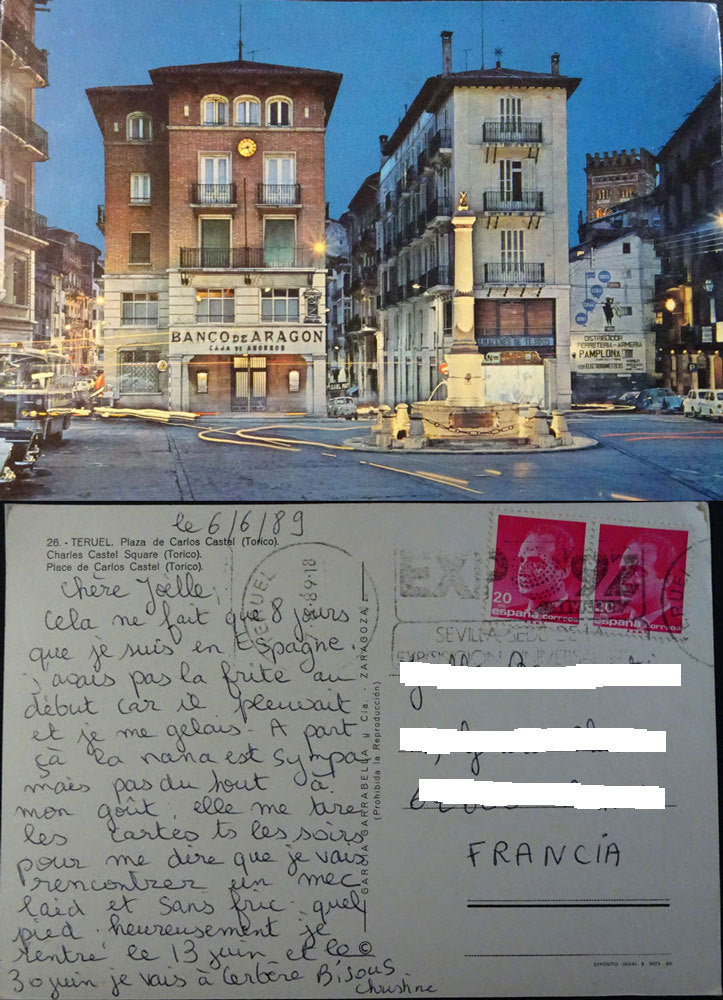 BANCO DE ARAGON
CAJA DE AHORROS
ALMACENES DE TEJIDOS
DISTRIBUIDOR
FERRETERIA - ARMERIA
PAMPLONA
ELECTRODOMESTICOS
le 6/6/89
26. - TERUEL. Plaza de Carlos Castel (Torico).
Charles Castel Square (Torico).
Place de Carlos Castel (Torico).
Chère Joëlle,
Cela ne fait que 8 jours
que je suis en Espagne.
j'avais pas la frite au
début car il pleuvait
et je me gelais. A part
çà la nana est sympa
mais pas du tout à
mon goût, elle me tire
les cartes ts les soirs
pour me dire que je vais
rencontrer un mec
laid et sans fric. quel
pied. heureusement je
rentre le 13 juin et le
30 juin je vais à Cerbère Bisous
Christine
GARCIA GARRABELLA y Cía. - ZARAGOZA
(Prohibida la Reproducción)
©
TERUEL
EXPO '92
SEVILLA SEDE
EXPOSICION UNIVERSAL
20
españa correos
20
españa correos
TERUEL
FRANCIA
DEPOSITO LEGAL B.